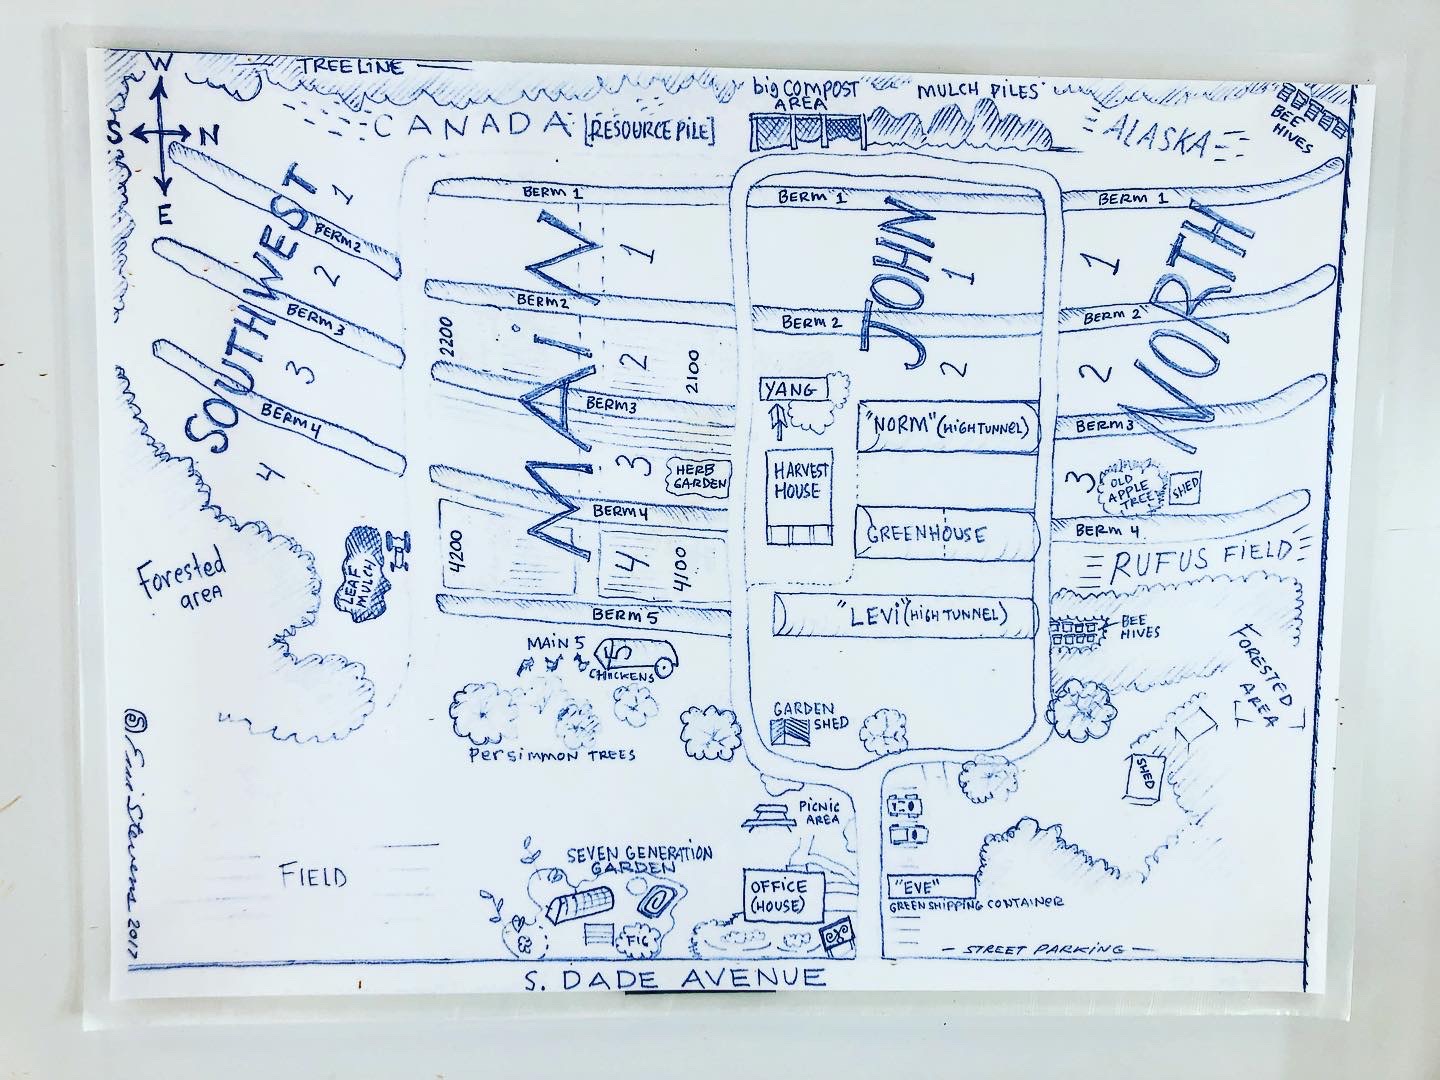 W
TREELINE
S
N
E
CANADA
[RESOURCE PILE]
big COMPOST
AREA
MULCH PILES
ALASKA
BEE
HIVES
SOUTHWEST
1
BERM 2
2
BERM 3
3
BERM 4
4
MAiN
BERM 1
1
BERM 2
2200
2
2100
BERM 3
3
HERB
GARDEN
BERM 4
4200
4
4100
BERM 5
MAIN 5
5
CHICKENS
JOHN
BERM 1
1
BERM 2
2
YANG
"NORM" (HIGH TUNNEL)
HARVEST
HOUSE
GREENHOUSE
"LEVi" (HIGH TUNNEL)
GARDEN
SHED
NORTH
BERM 1
1
BERM 2
2
BERM 3
3
OLD
APPLE
TREE
SHED
BERM 4
RUFUS FIELD
BEE
HIVES
FORESTED
AREA
SHED
Forested
area
LEAF
MULCH
Persimmon TREES
PICNIC
AREA
FIELD
SEVEN GENERATION
GARDEN
FIG
OFFICE
(HOUSE)
"EVE"
GREEN SHIPPING CONTAINER
- STREET PARKING -
S. DADE AVENUE
Stevens 2017